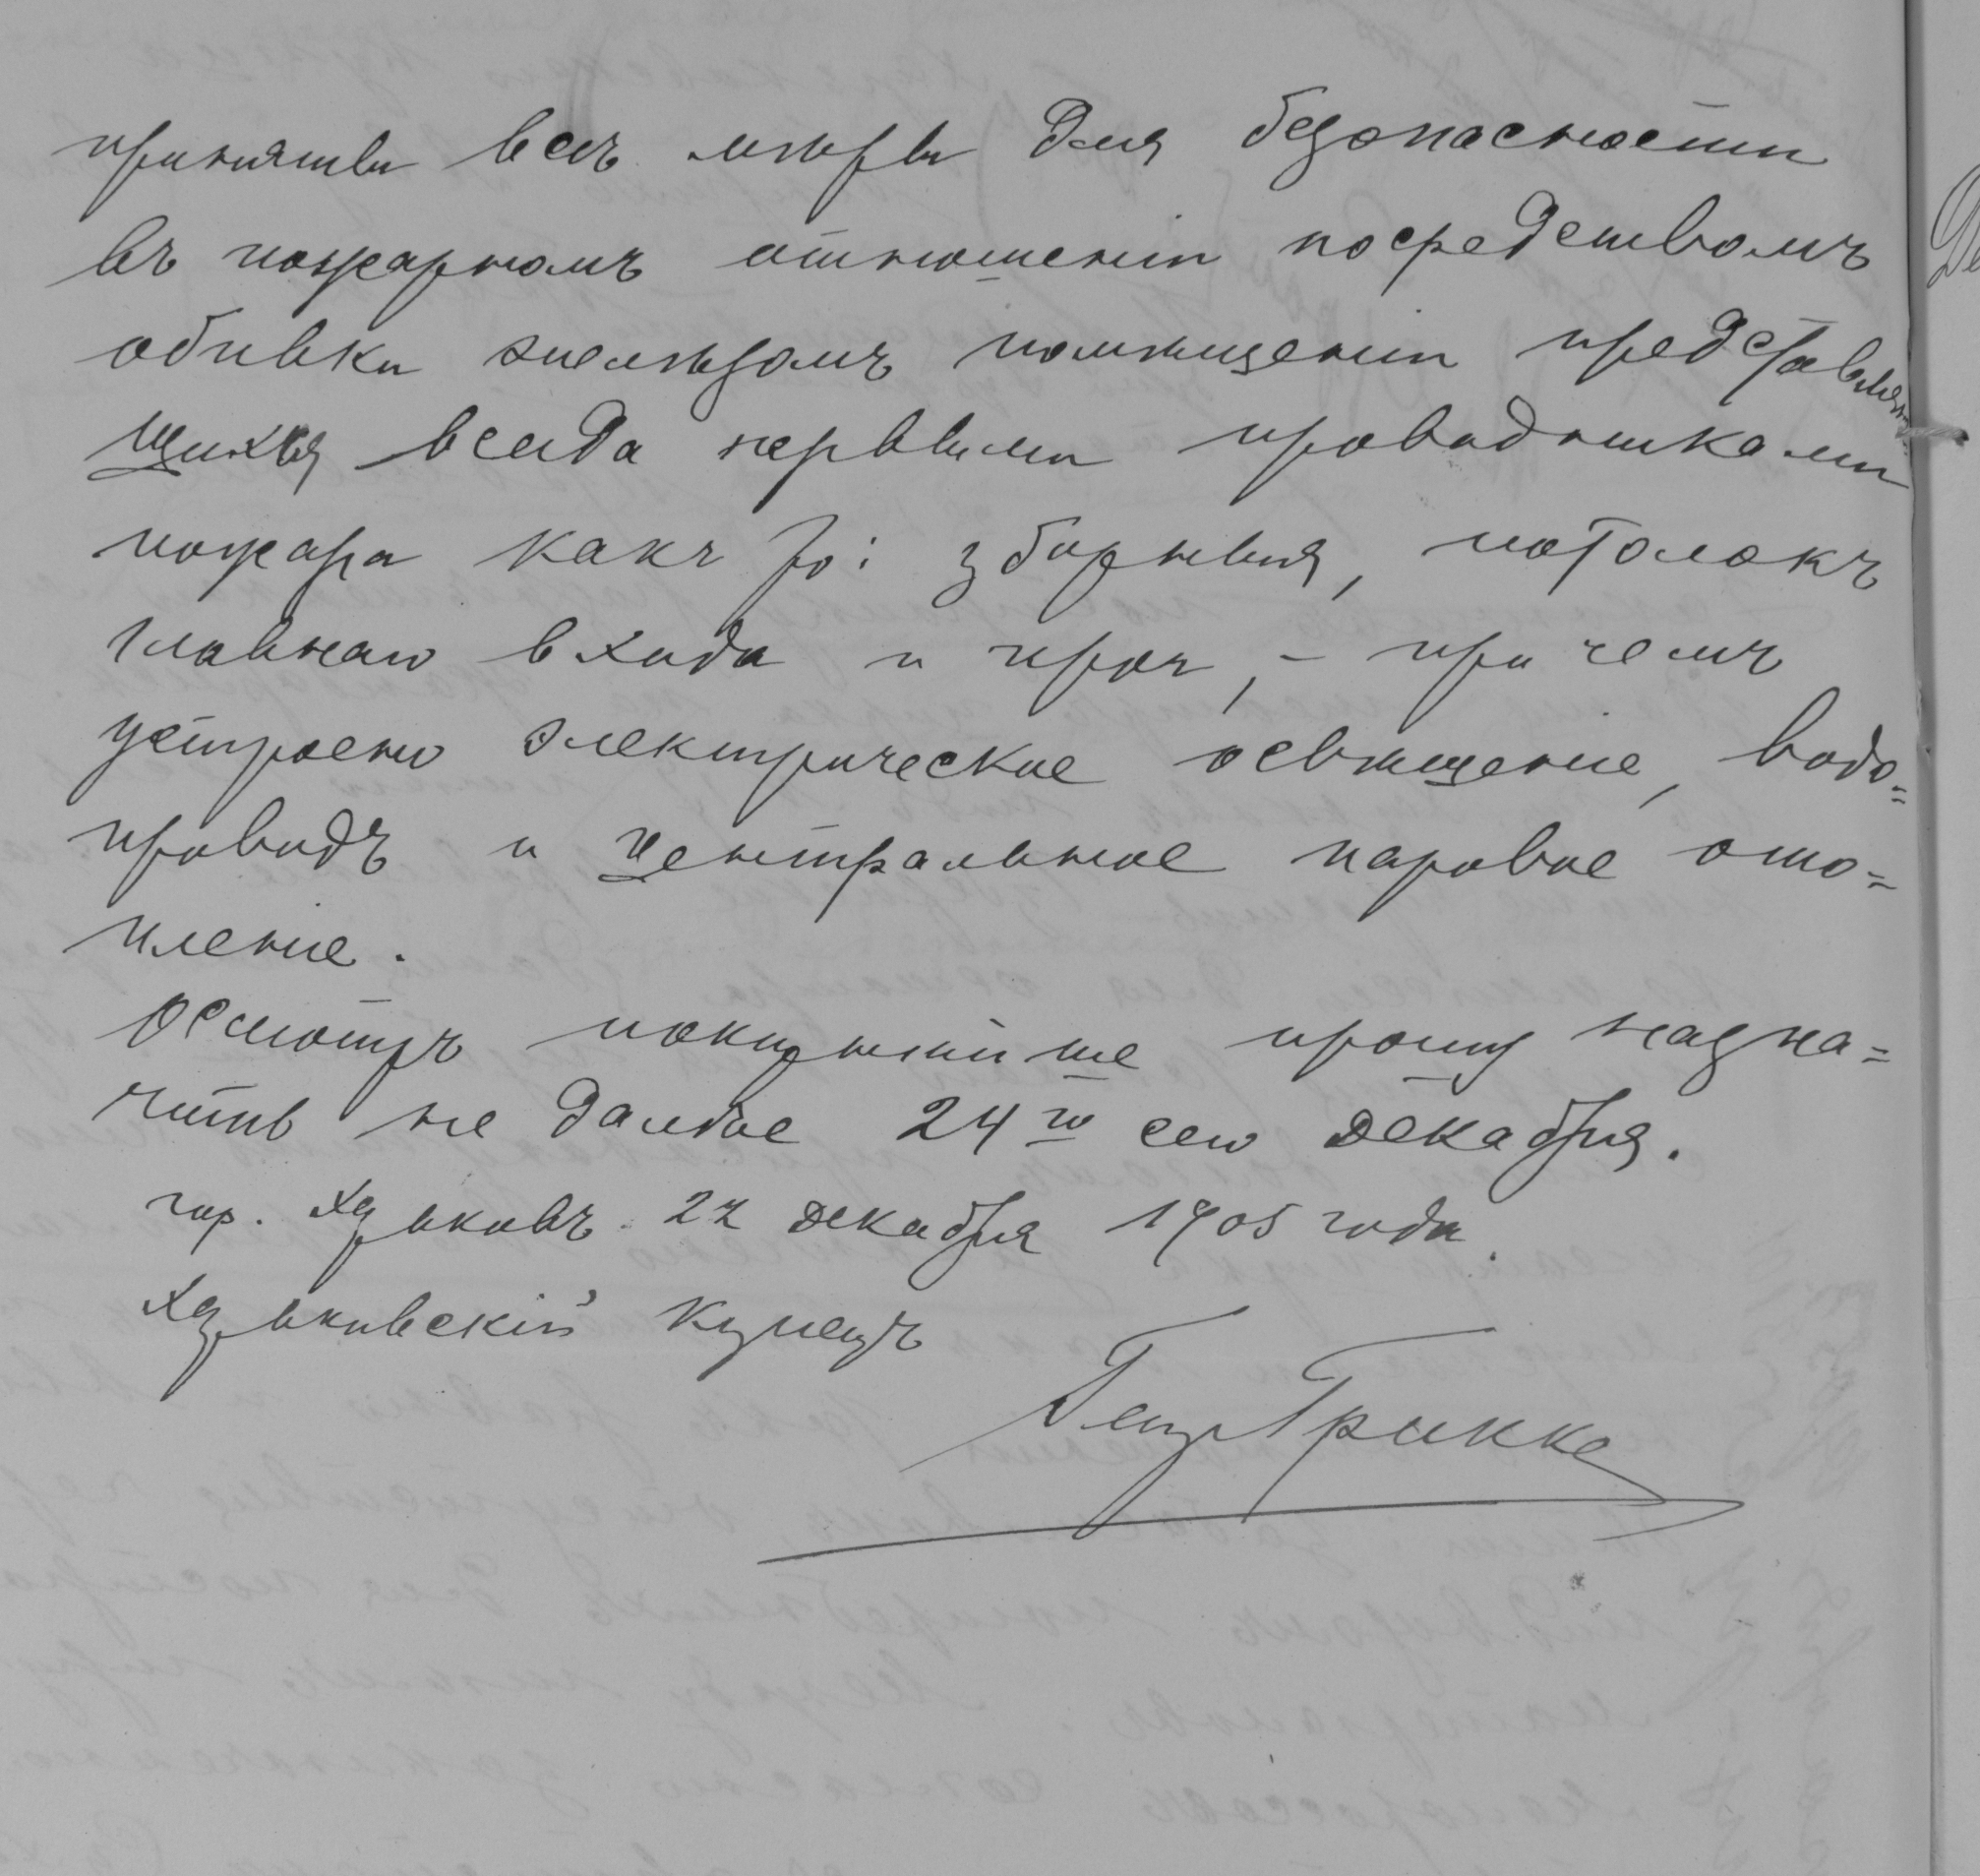 приняты всѣ мѣры для безопасности
въ пожарномъ отношеніи посредствомъ
обивки желѣзомъ помѣщеніи представляю-
щихъя всегда первыми проводниками
пожара какъ то: уборныя, потолокъ
главнаго входа и проч, – при чемъ
устроено электрическое освѣщеніе, водо=
проводъ и центральное паровое ото=
пленіе.
Осмотръ покорнѣйше прошу назна=
чить не далѣе 24го сего декабря.
гор. Харьковъ. 22 декабря 1905 года.
Харьковскій купецъ
Грикке